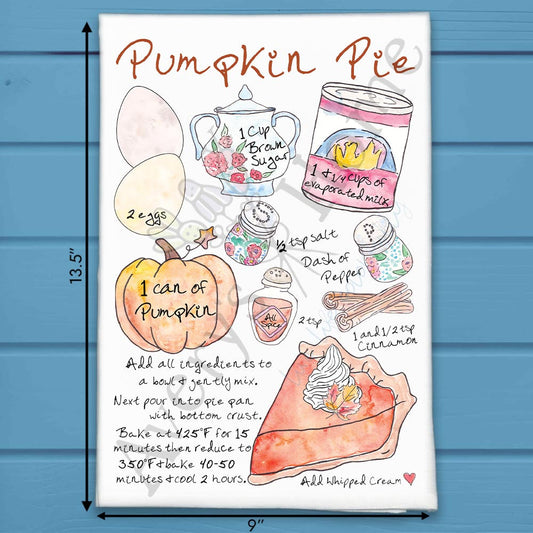 Pumpkin Pie
1 Cup
Brown
Sugar
1 & 1/4 cups of
evaporated milk
2 eggs
S
1/2 tsp salt
P
Dash of
Pepper
1 can of
Pumpkin
All
Spice
2 tsp
1 and 1/2 tsp
Cinnamon
Add all ingredients to
a bowl & gently mix.
Next pour into pie pan
with bottom crust.
Bake at 425°F for 15
minutes then reduce to
350°F & bake 40-50
minutes & cool 2 hours.
Add Whipped Cream
13.5"
9"